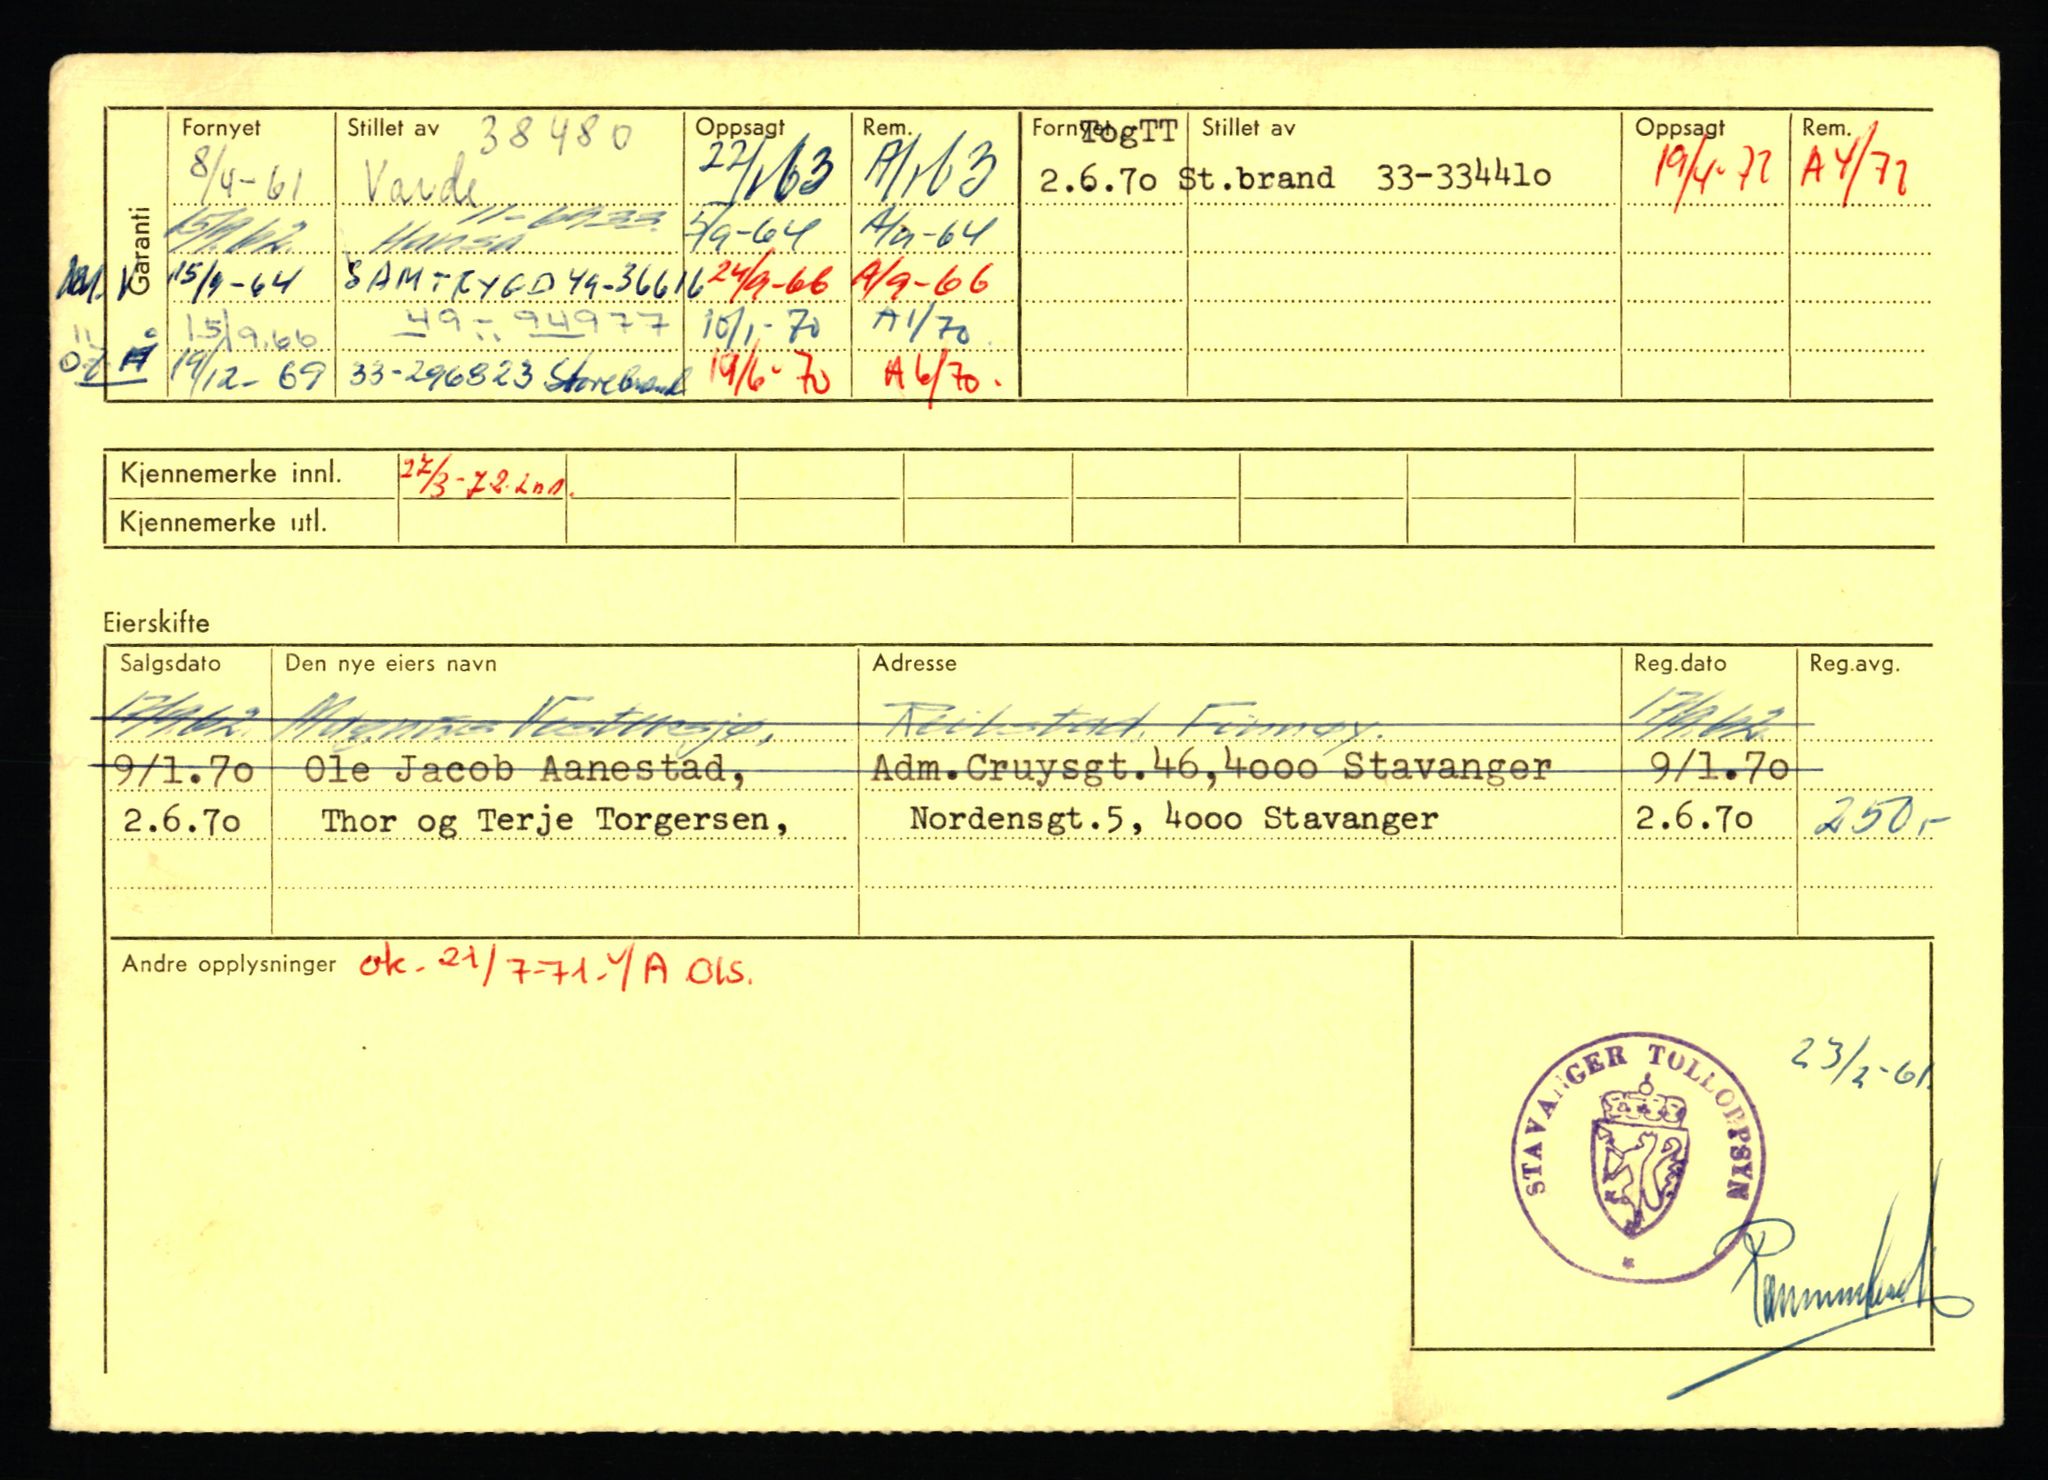 Garanti
Fornyet Stillet av 38480 Oppsagt Rem. Fornyet TogTT Stillet av Oppsagt Rem.
8/4-61 Varde 22/1 63 A/1 63 2.6.70 St.brand 33-334410 19/4-72 A 4/72
15/9.62. Hansa 5/9-64 A/9-64
15/9-64 SAMTRYGD 49-36616 24/9-66 A/9-66
15/9.66 49-94977 10/1-70 A1/70
19/12-69 33-296823 Storebrand 19/6-70 A6/70.
Kjennemerke innl. 27/3-72. inn.
Kjennemerke utl.
Eierskifte
Salgsdato Den nye eiers navn Adresse Reg.dato Reg.avg.
17/9.62. Magnus Vestersjø, Reilstad, Finnøy. 17/9.62.
9/1.70 Ole Jacob Aanestad, Adm.Cruysgt.46,4000 Stavanger 9/1.70
2.6.70 Thor og Terje Torgersen, Nordensgt.5, 4000 Stavanger 2.6.70 250,-
Andre opplysninger ok- 21/7-71-
23/2-61.
STAVANGER TOLLOPPSYN